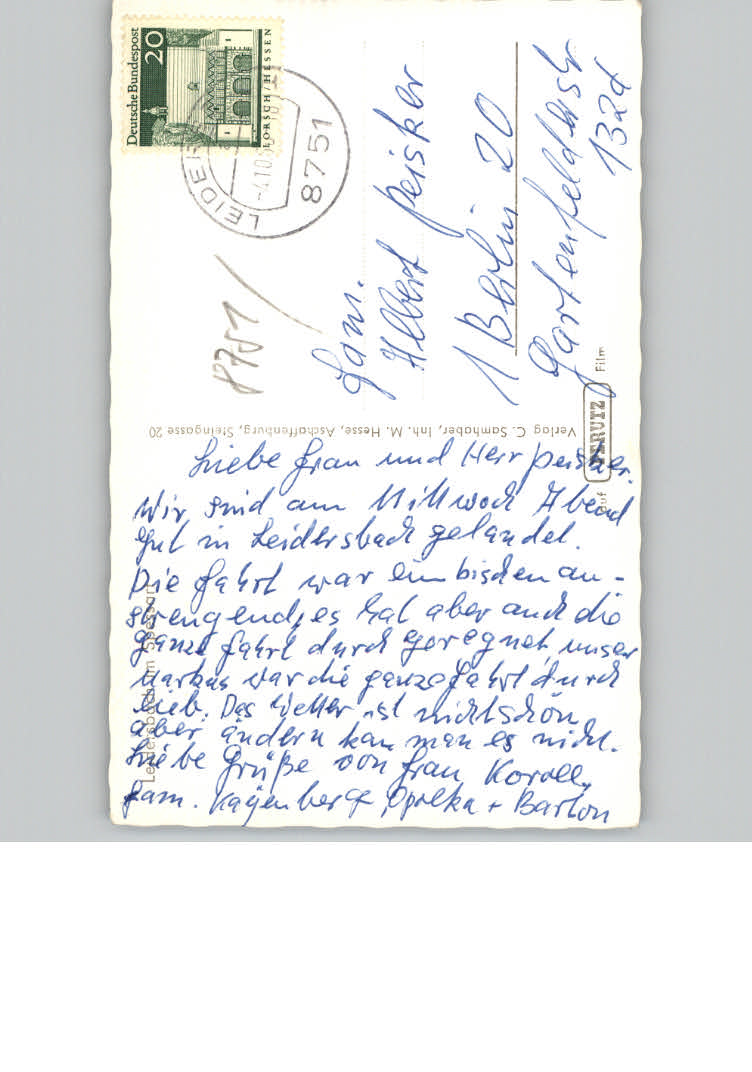 Deutsche Bundespost
20
LORSCH/HESSEN
LEIDER
-4.10.6
8751
8751
Fam.
Albert Peisker
1 Berlin 20
Gartenfelderstr
132d
Verlag C. Samhaber, Inh. M. Hesse, Aschaffenburg, Steingasse 20
auf PERUTZ Film
Leidersbach im Spessart
Liebe Frau und Herr Peisker.
Wir sind am Mittwoch Abend
gut in Leidersbach gelandet.
Die Fahrt war ein bischen an-
strengend, es hat aber auch die
ganze Fahrt durch geregnet, unser
Markus war die ganze Fahrt durch
lieb. Das Wetter ist nicht schön
aber ändern kan man es nicht.
Liebe Grüße von Frau Koroll,
Fam. Kayenberg, Opolka + Barton